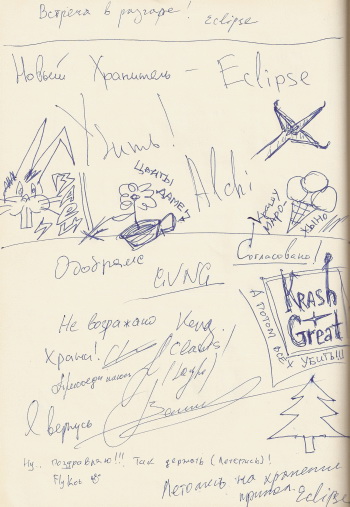 Встреча в разгаре! Eclipse
Новый Хранитель – Eclipse
Убить!
ЦВЕТЫ
ДАМЕ!
Alchi
Хочу
МОРО-
ЖЕНО
Согласовано!
Одобрямс
GVNG
KRASH
+
Great
А ПОТОМ ВСЕХ УБИТЬ!!!
Не возражаю
Храни!
(Claus)
Присоединяюсь
Я вернусь
Ну.. поздравляю!!! Так держать (Летопись)!
Летопись на хранение
принял. Eclipse